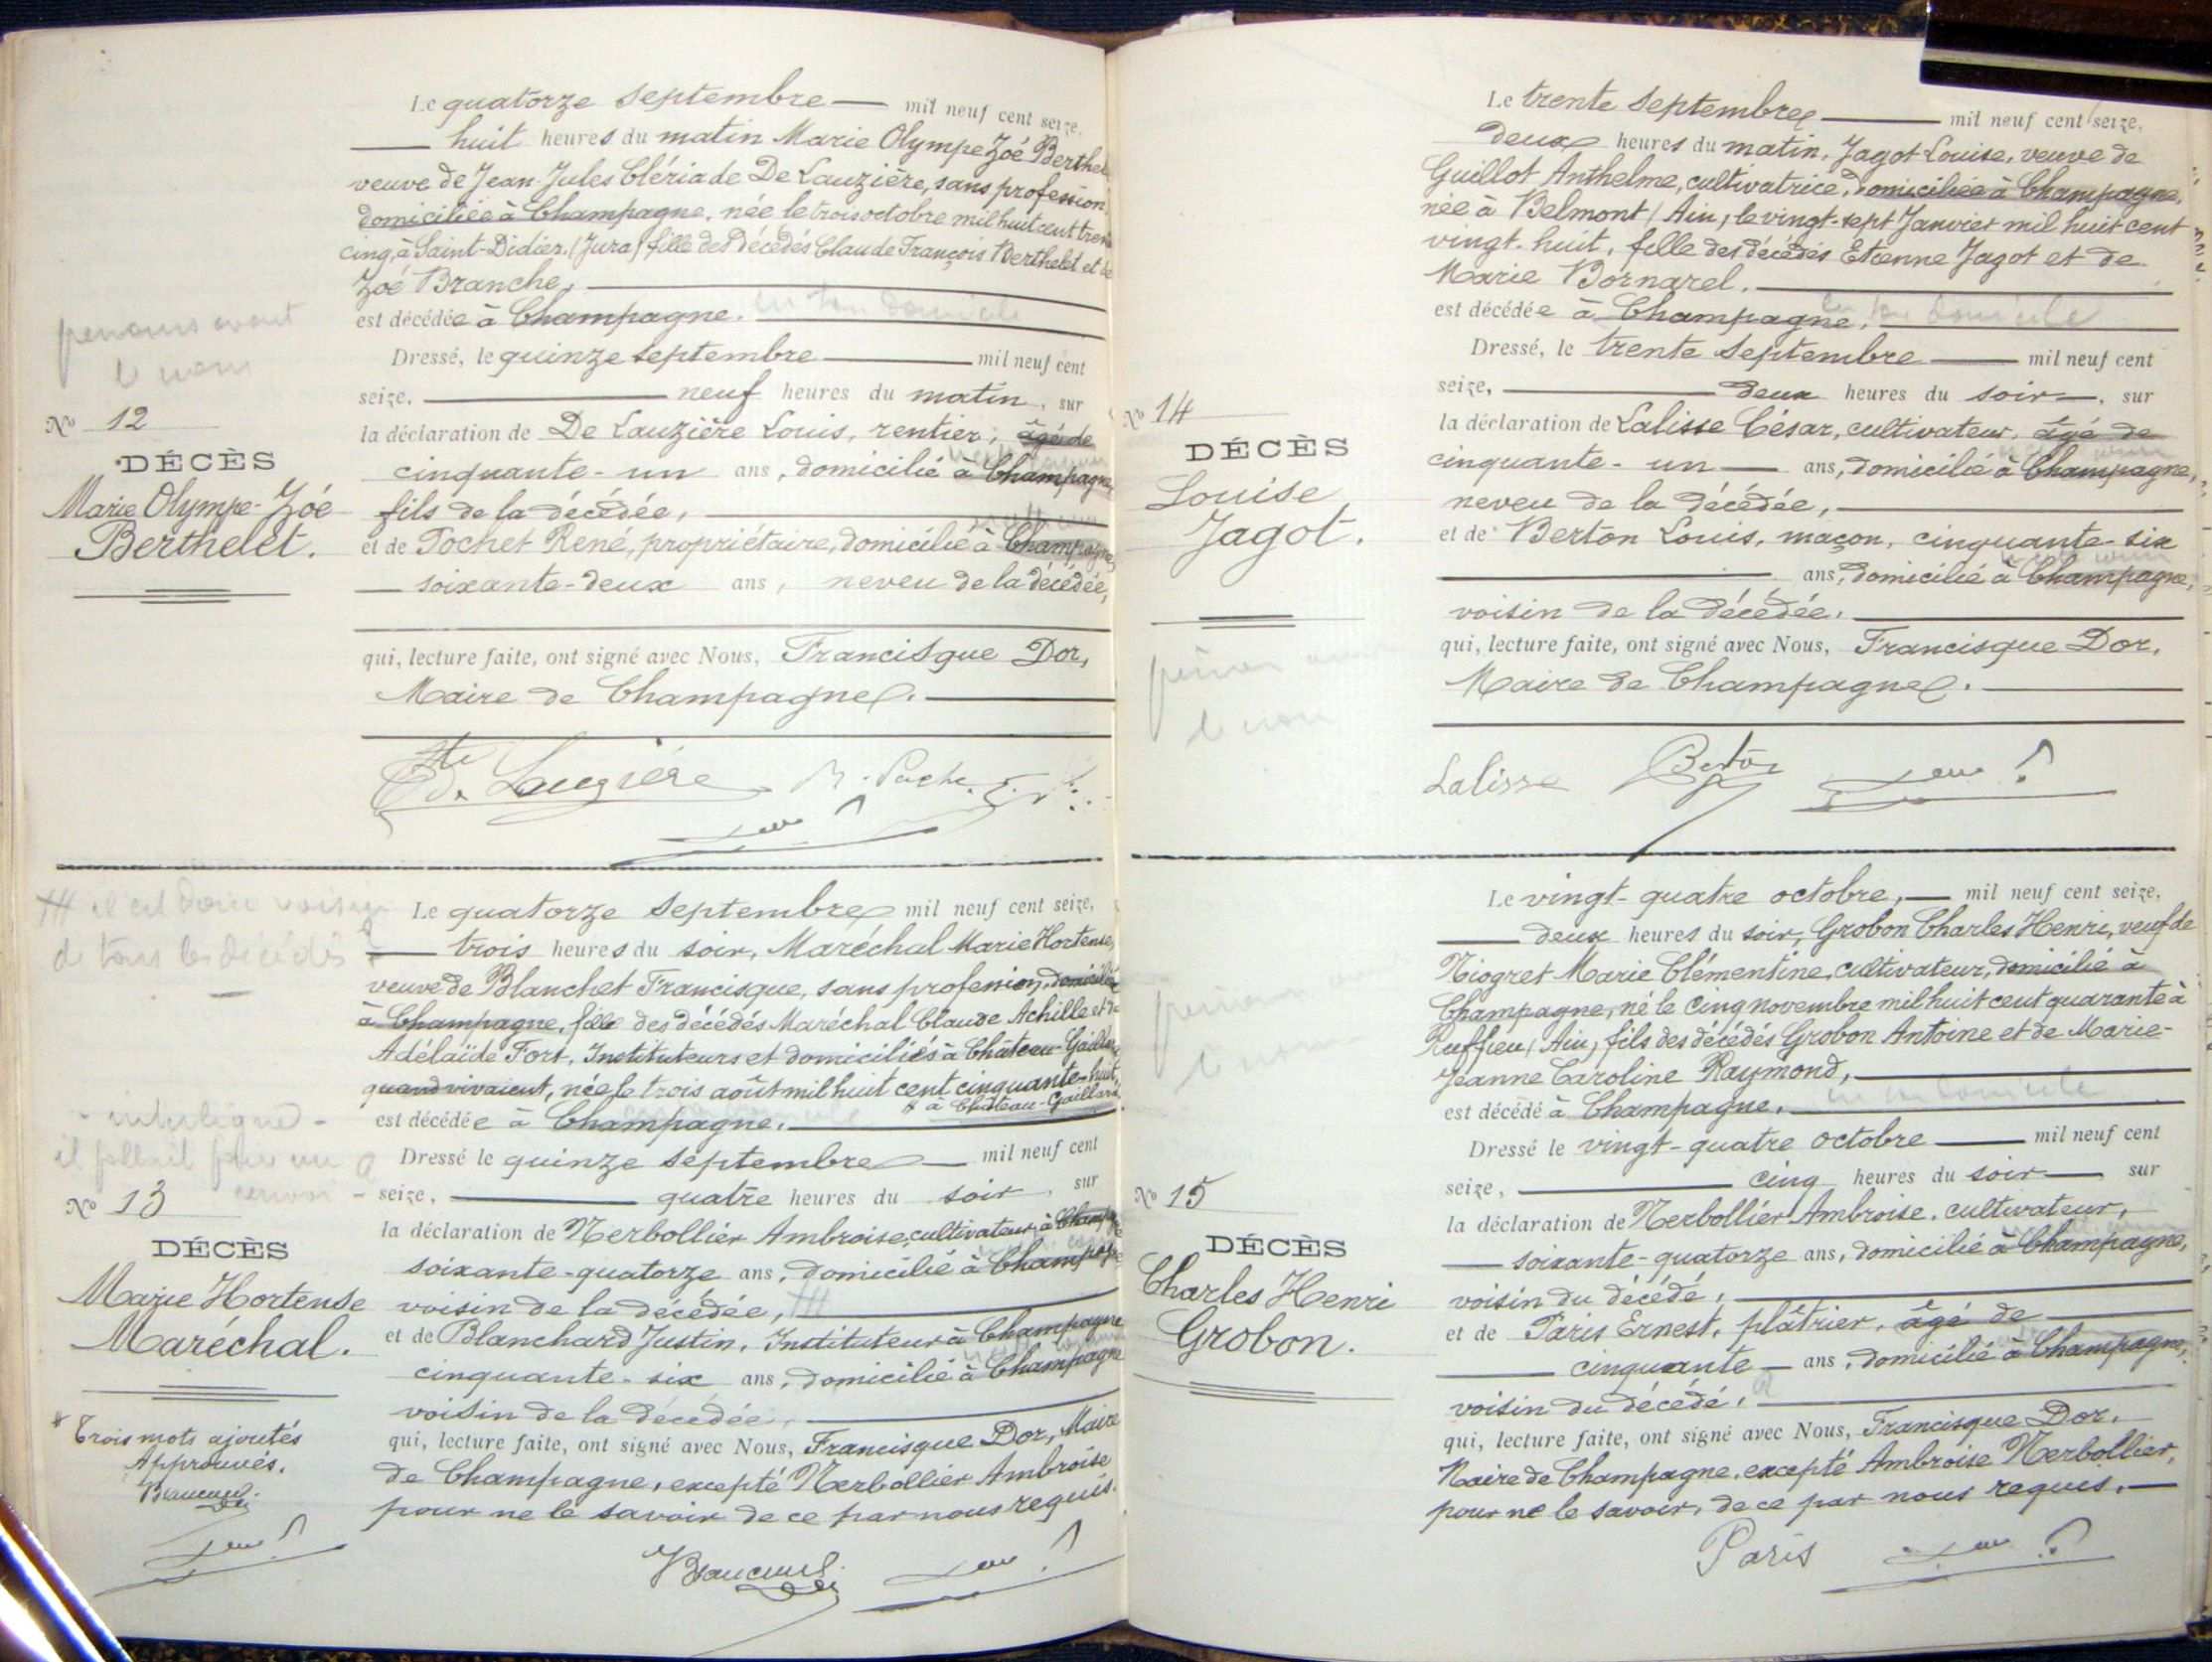 Le quatorze septembre — mil neuf cent seize,
— huit heures du matin Marie Olympe Zoé Berthelet
veuve de Jean-Jules Clériade De Lauzière, sans profession,
domiciliée à Champagne, née le trois octobre mil huit cent trente
cinq, à Saint-Didier, (Jura) fille des décédés Claude François Berthelet et de
Zoé Branche, —
est décédée à Champagne. en son domicile
Dressé, le quinze septembre — mil neuf cent
seize, — neuf heures du matin, sur
la déclaration de De Lauzière Louis, rentier, âgé de
cinquante-un ans, domicilié à Champagne,
fils de la décédée, —
et de Pochet René, propriétaire, domicilié à Champagne,
— soixante-deux ans, neveu de la décédée,
qui, lecture faite, ont signé avec Nous, Francisque Dor,
Maire de Champagne. —
de Lauzière
prénoms avant
le nom
No 12
DÉCÈS
Marie Olympe-Zoé
Berthelet.
Le quatorze septembre mil neuf cent seize,
— trois heures du soir, Maréchal Marie Hortense,
veuve de Blanchet Francisque, sans profession, domiciliée
à Champagne, fille des décédés Maréchal Claude Achille et de
Adélaïde Fort, Instituteurs et domiciliés à Château-Gaillard
quand vivaient, née le trois août mil huit cent cinquante-huit,
* à Château-Gaillard.
est décédée à Champagne. —
Dressé le quinze septembre — mil neuf cent
seize, — quatre heures du soir, sur
la déclaration de Nerbollier Ambroise, cultivateur à Champagne
soixante-quatorze ans, domicilié à Champagne
voisin de la décédée, —
et de Blanchard Justin, Instituteur à Champagne
cinquante-six ans, domicilié à Champagne
voisin de la décédée, —
qui, lecture faite, ont signé avec Nous, Francisque Dor, Maire
de Champagne, excepté Nerbollier Ambroise
pour ne le savoir de ce par nous requis.
il est donc voisin
de tous les décédés
- interligné -
il fallait faire un
renvoi -
No 13
DÉCÈS
Marie Hortense
Maréchal.
* Trois mots ajoutés
Approuvés.
Le trente septembre — mil neuf cent seize,
deux heures du matin, Jagot Louise, veuve de
Guillot Anthelme, cultivatrice, domiciliée à Champagne,
née à Belmont (Ain), le vingt-sept Janvier mil huit cent
vingt-huit, fille des décédés Etienne Jagot et de
Marie Bornarel. —
est décédée à Champagne. en son domicile
Dressé, le trente septembre — mil neuf cent
seize, — deux heures du soir —, sur
la déclaration de Lalisse César, cultivateur, âgé de
cinquante-un — ans, domicilié à Champagne,
neveu de la décédée, —
et de Berton Louis, maçon, cinquante-six
— ans, domicilié à Champagne,
voisin de la décédée. —
qui, lecture faite, ont signé avec Nous, Francisque Dor,
Maire de Champagne. —
Lalisse Berton
No 14
DÉCÈS
Louise
Jagot.
prénom avant
le nom
Le vingt-quatre octobre, — mil neuf cent seize,
— deux heures du soir, Grobon Charles Henri, veuf de
Niogret Marie Clémentine, cultivateur, domicilié à
Champagne, né le cinq novembre mil huit cent quarante à
Ruffieu (Ain) fils des décédés Grobon Antoine et de Marie-
Jeanne Caroline Raymond, —
est décédé à Champagne. en son domicile
Dressé le vingt-quatre octobre — mil neuf cent
seize, — cinq heures du soir — sur
la déclaration de Nerbollier Ambroise, cultivateur,
— soixante-quatorze ans, domicilié à Champagne,
voisin du décédé, —
et de Paris Ernest, plâtrier, âgé de —
— cinquante — ans, domicilié à Champagne,
voisin du décédé, —
qui, lecture faite, ont signé avec Nous, Francisque Dor,
Maire de Champagne, excepté Ambroise Nerbollier,
pour ne le savoir, de ce par nous requis. —
Paris
prénom
le nom
No 15
DÉCÈS
Charles Henri
Grobon.